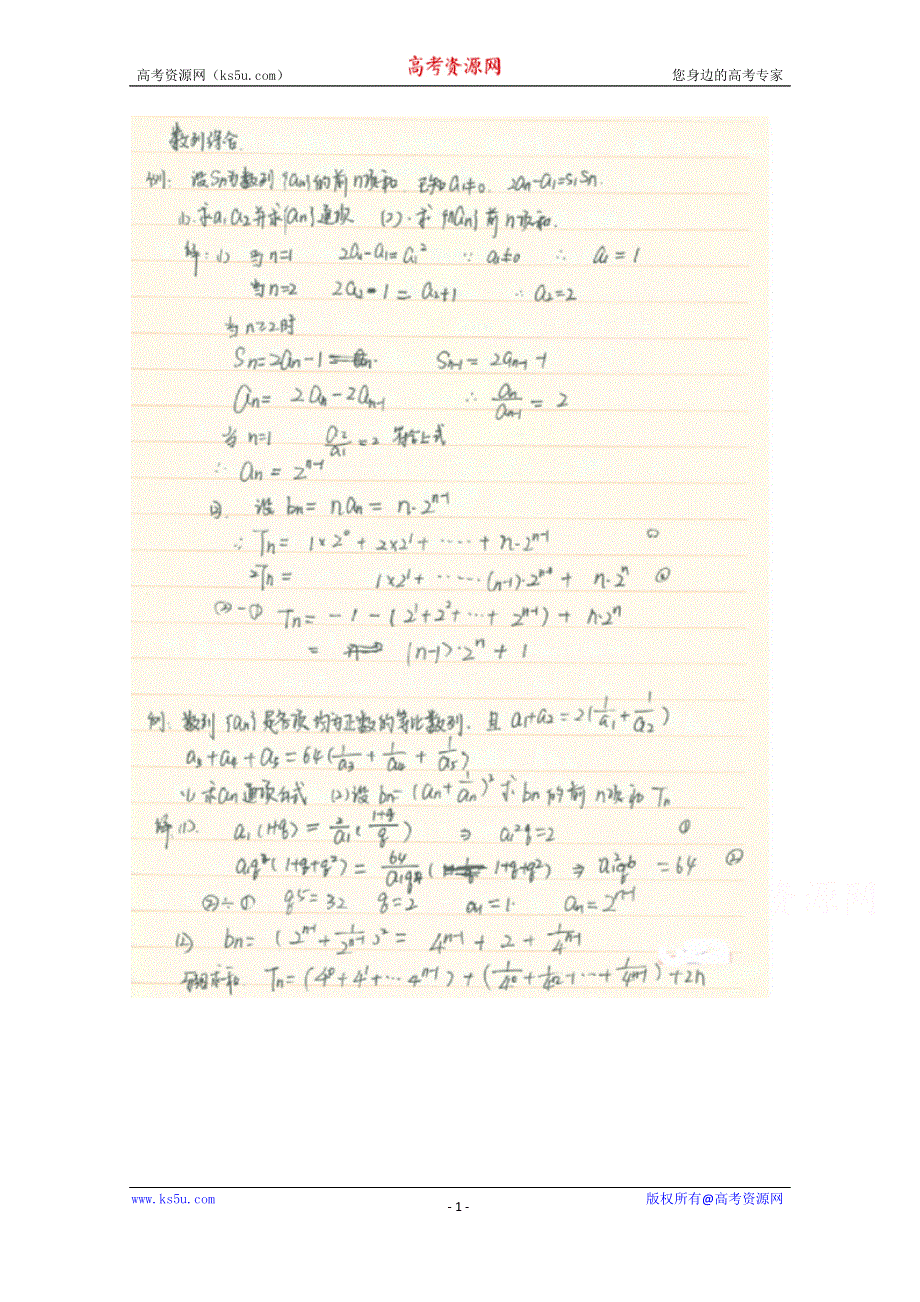 高考资源网（ks5u.com） 高考资源网 您身边的高考专家
数列综合
例: 设Sn为数列{an}的前n项和 已知a1≠0. 2an-a1=S1Sn
(1). 求a1 a2并求{an}通项 (2). 求{nan}前n项和.
解: (1) 当n=1 2a1-a1=a1² ∵ a1≠0 ∴ a1=1
当n=2 2a2-1=a2+1 ∴ a2=2
当n≥2时
Sn=2an-1 Sn-1=2an-1-1
an=2an-2an-1 ∴ an/an-1=2
当n=1 a2/a1=2 符合上式
∴ an=2^(n-1)
(2). 设bn=nan=n·2^(n-1)
∴ Tn=1×2⁰+2×2¹+·····+n·2^(n-1) ①
2Tn=1×2¹+·····(n-1)·2^(n-1)+n·2^n ②
②-① Tn=-1-(2¹+2²+···+2^(n-1))+n·2^n
=(n-1)·2^n+1
例: 数列{an}是各项均为正数的等比数列. 且a1+a2=2(1/a1+1/a2)
a3+a4+a5=64(1/a3+1/a4+1/a5)
(1) 求an通项公式 (2) 设bn=(an+1/an)² 求bn的前n项和Tn
解(1). a1(1+q)=2/a1((1+q)/q) ⇒ a1²q=2 ①
a1q²(1+q+q²)=64/a1q⁴(1+q+q²) ⇒ a1²q⁶=64 ②
②÷① q⁵=32 q=2 a1=1. an=2^(n-1)
(2) bn=(2^(n-1)+1/2^(n-1))²=4^(n-1)+2+1/4^(n-1)
分组求和 Tn=(4⁰+4¹+···4^(n-1))+(1/4⁰+1/4²+···+1/4^(n-1))+2n
www.ks5u.com - 1 - 版权所有@高考资源网